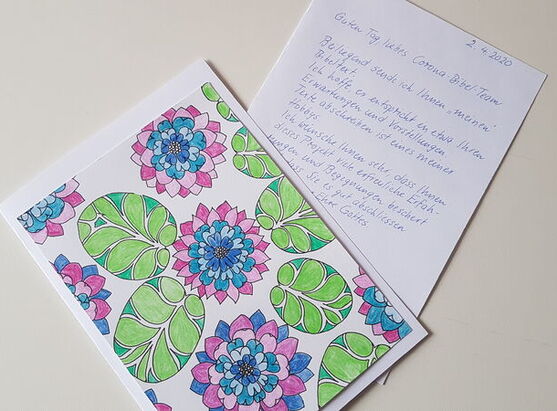 2.4.2020
Guten Tag, liebes Corona-Bibel-Team
Beiliegend sende ich Ihnen „meinen"
Bibeltext.
Ich hoffe er entspricht en etwa Ihren
Erwartungen und Vorstellungen
Texte abschreiben ist eines meiner
Hobbys
Ich wünsche Ihnen sehr, dass Ihnen
dieses Projekt viele erfreuliche Erfah-
ungen und Begegnungen beschert
ass Sie es gut abschliessen
Gottes